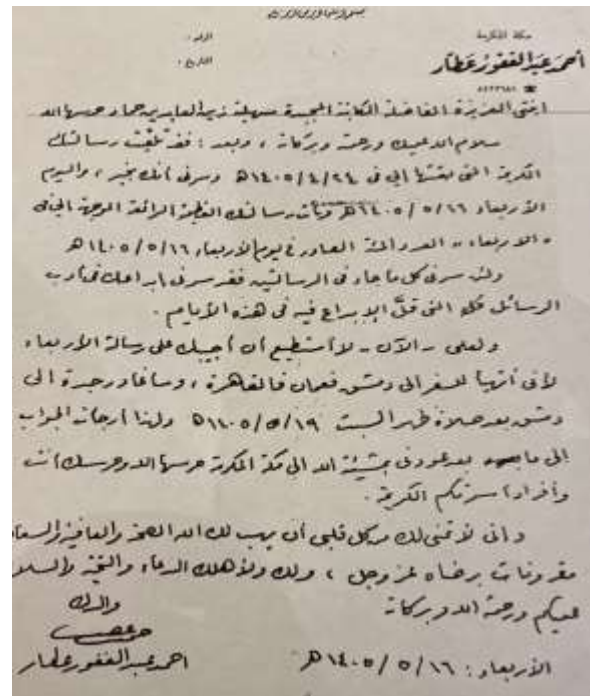 مكة المكرمة
الرقم :
أحمد عبد الغفور عطار
التاريخ :
ابنتي العزيزة الفاضلة الكاتبة المجيدة سهيلة زين العابدين حماد حرسها الله
سلام الله عليك ورحمته وبركاته ، وبعد : فقد تلقيت رسالتك
الكريمة التي بعثتها إلي في ٢٤/٤/١٤٠٥هـ وسرني أنك بخير ، واليوم
الأربعاء ١٦/٥/١٤٠٥هـ رسالتك العظيمة الرائعة الموجهة إلي في
" الأربعاء " العدد المائة الصادر في يوم الأربعاء ١٦/٥/١٤٠٥هـ
ولقد سرني كل ما جاء في الرسالتين فقد سرني إبداعك في أدب
الرسائل التي قل الإبداع فيه في هذه الأيام .
ولعلي - الآن - لا أستطيع أن أجيبك على رسالة الأربعاء
لأني أتهيأ للسفر إلى دمشق فعمان فالقاهرة ، وسأغادر جدة إلى
دمشق بعد صلاة ظهر السبت ١٩/٥/١٤٠٥هـ ولهذا أرجأت الجواب
إلى ما بعد عودتي بمشيئة الله إلى مكة المكرمة حرسها الله وحرسك أنت
وأفراد أسرتكم الكريمة .
وإني لأتمنى لك من كل قلبي أن يهب لك الله الصحة والعافية والسعا
مقرونات برضاه عز وجل ، ولك ولأهلك الدعاء والتحية والسلا
عليكم ورحمة الله وبركاته
والدك
أحمد عبد الغفور عطار
الأربعاء : ١٦/٥/١٤٠٥هـ